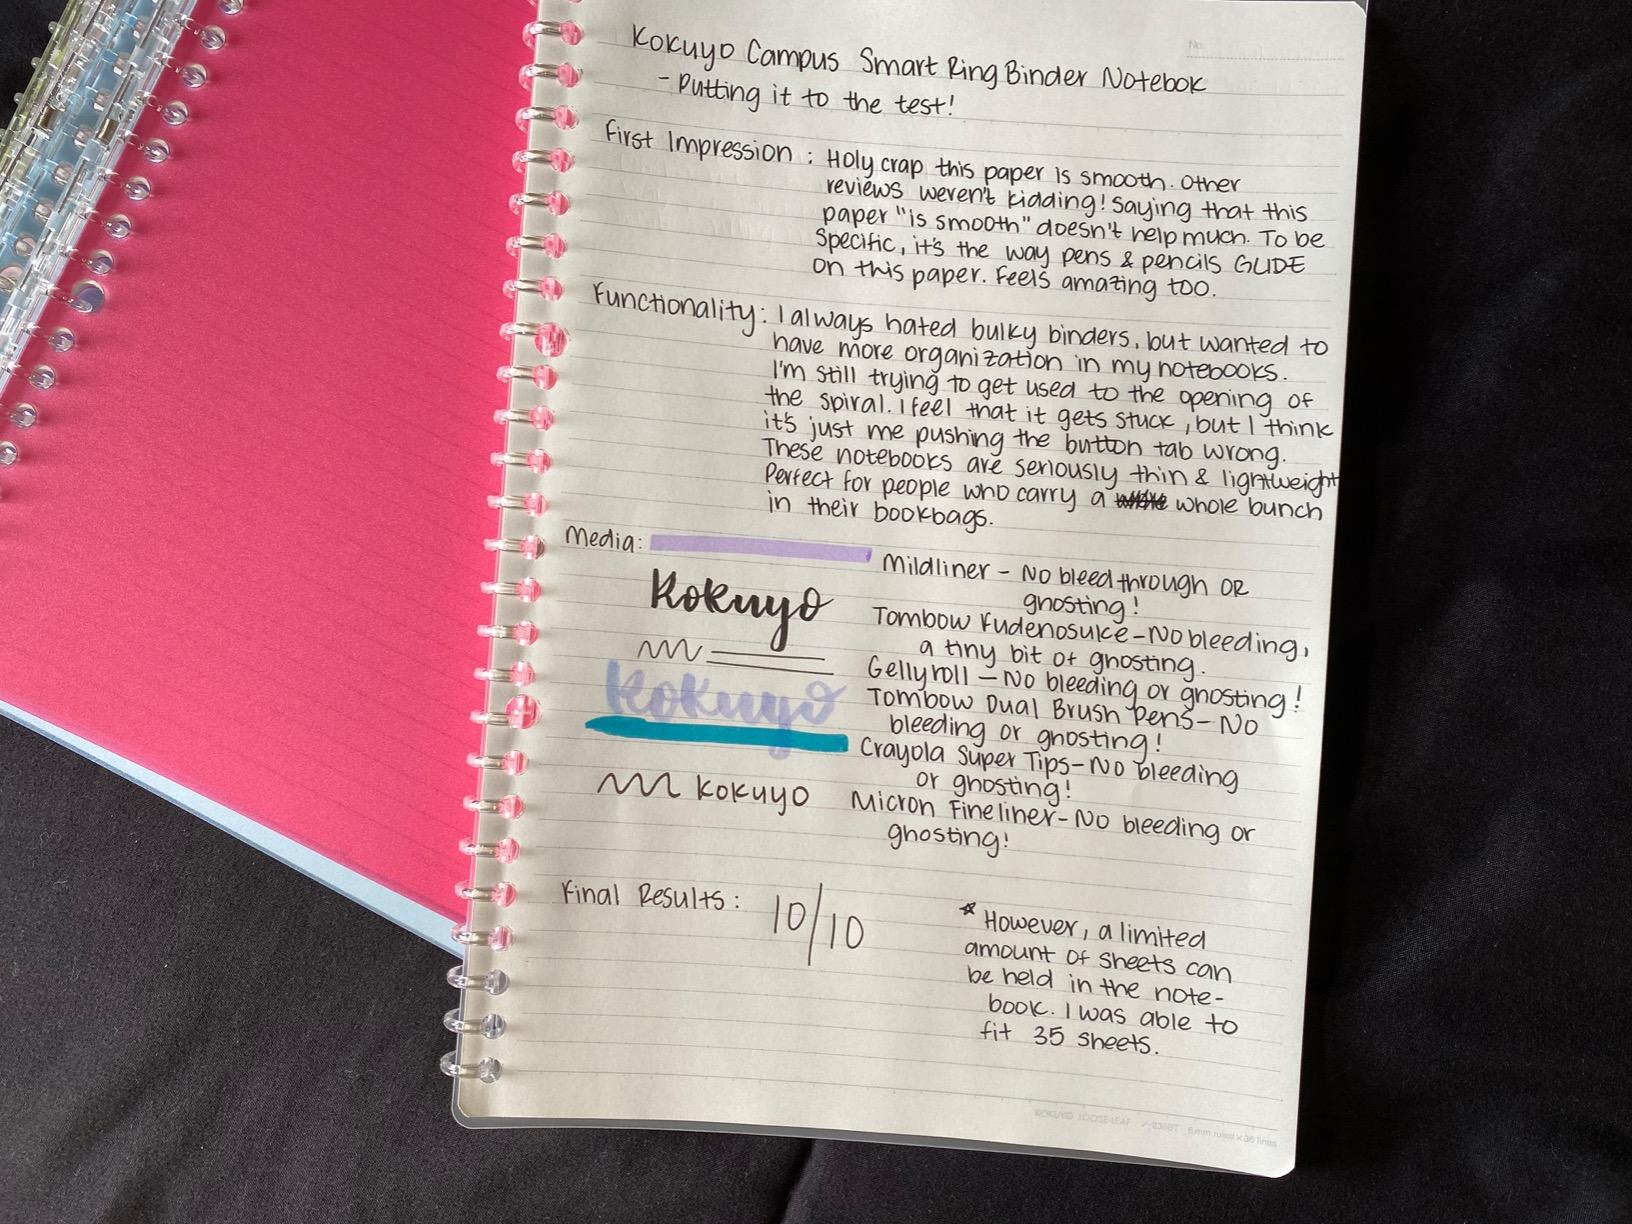 No.
Kokuyo Campus Smart Ring Binder Notebok
- Putting it to the test!
First Impression : Holy crap this paper is smooth. Other
reviews weren't kidding! Saying that this
paper "is smooth" doesn't help much. To be
specific, it's the way pens & pencils GLIDE
on this paper. Feels amazing too.
Functionality: I always hated bulky binders, but wanted to
have more organization in my notebooks.
I'm still trying to get used to the opening of
the spiral. I feel that it gets stuck, but I think
it's just me pushing the button tab wrong.
These notebooks are seriously thin & lightweight
Perfect for people who carry a whole bunch
in their bookbags.
Media:
Mildliner - No bleed through OR
ghosting!
Kokuyo
Tombow Fudenosuke - No bleeding,
a tiny bit of ghosting.
Gellyroll - No bleeding or ghosting!
Kokuyo
Tombow Dual Brush Pens - No
bleeding or ghosting!
Crayola Super Tips - No bleeding
or ghosting!
Kokuyo
Micron Fineliner - No bleeding or
ghosting!
Final Results: 10/10
* However, a limited
amount of sheets can
be held in the note-
book. I was able to
fit 35 sheets.
KOKUYO LOOSE-LEAF 6 mm ruled × 36 lines